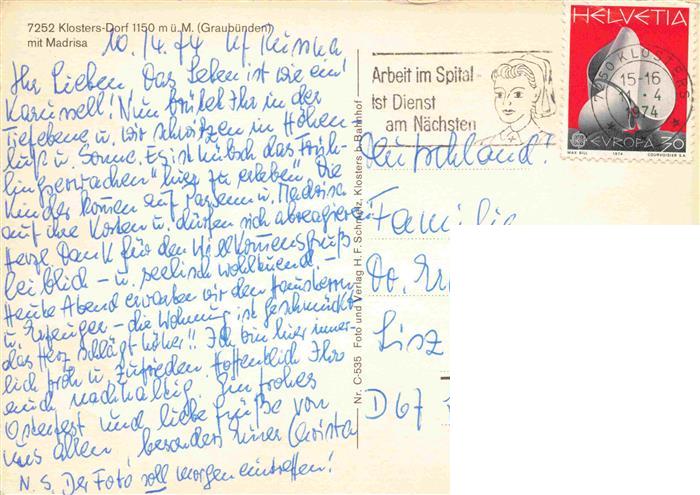 7252 Klosters-Dorf 1150 m ü. M. (Graubünden)
mit Madrisa
10./4. 74
Ihr Lieben. Das Leben ist wie ein
Karussell! Nun brütet Ihr in der
Tiefebene u. wir schwitzen in Höhen-
luft u. Sonne. Es ist hübsch das Früh-
lingserwachen" hier zu erleben". Die
Kinder kommen auf u. Madrisa
auf ihre Kosten u. dürfen sich abreagieren
Herzl. Dank für den Willkommensgruß
leiblich - u. seelisch wohltuend -
Heute Abend erwarten wir den Hausherrn
u. Erzeuger - die Wohnung ist geschmückt
das Herz schlägt höher!! Ich bin hier inner-
lich froh u. zufrieden. Hoffentlich Ihr
auch nachhaltig. Ein frohes
Osterfest und liebe Grüße von
uns allen, besonders Eurer Christa
N.S. Der Foto soll morgen eintreffen!
Nr. C-535 Foto und Verlag H. F. Schmelz, Klosters b. Bahnhof
Arbeit im Spital
ist Dienst
am Nächsten
HELVETIA
7250 KLOSTERS
15-16
4
1974
EUROPA 30
MAX BILL 1974 COURVOISIER S.A.
Deutschland!
Familie
Do. Er
D 67